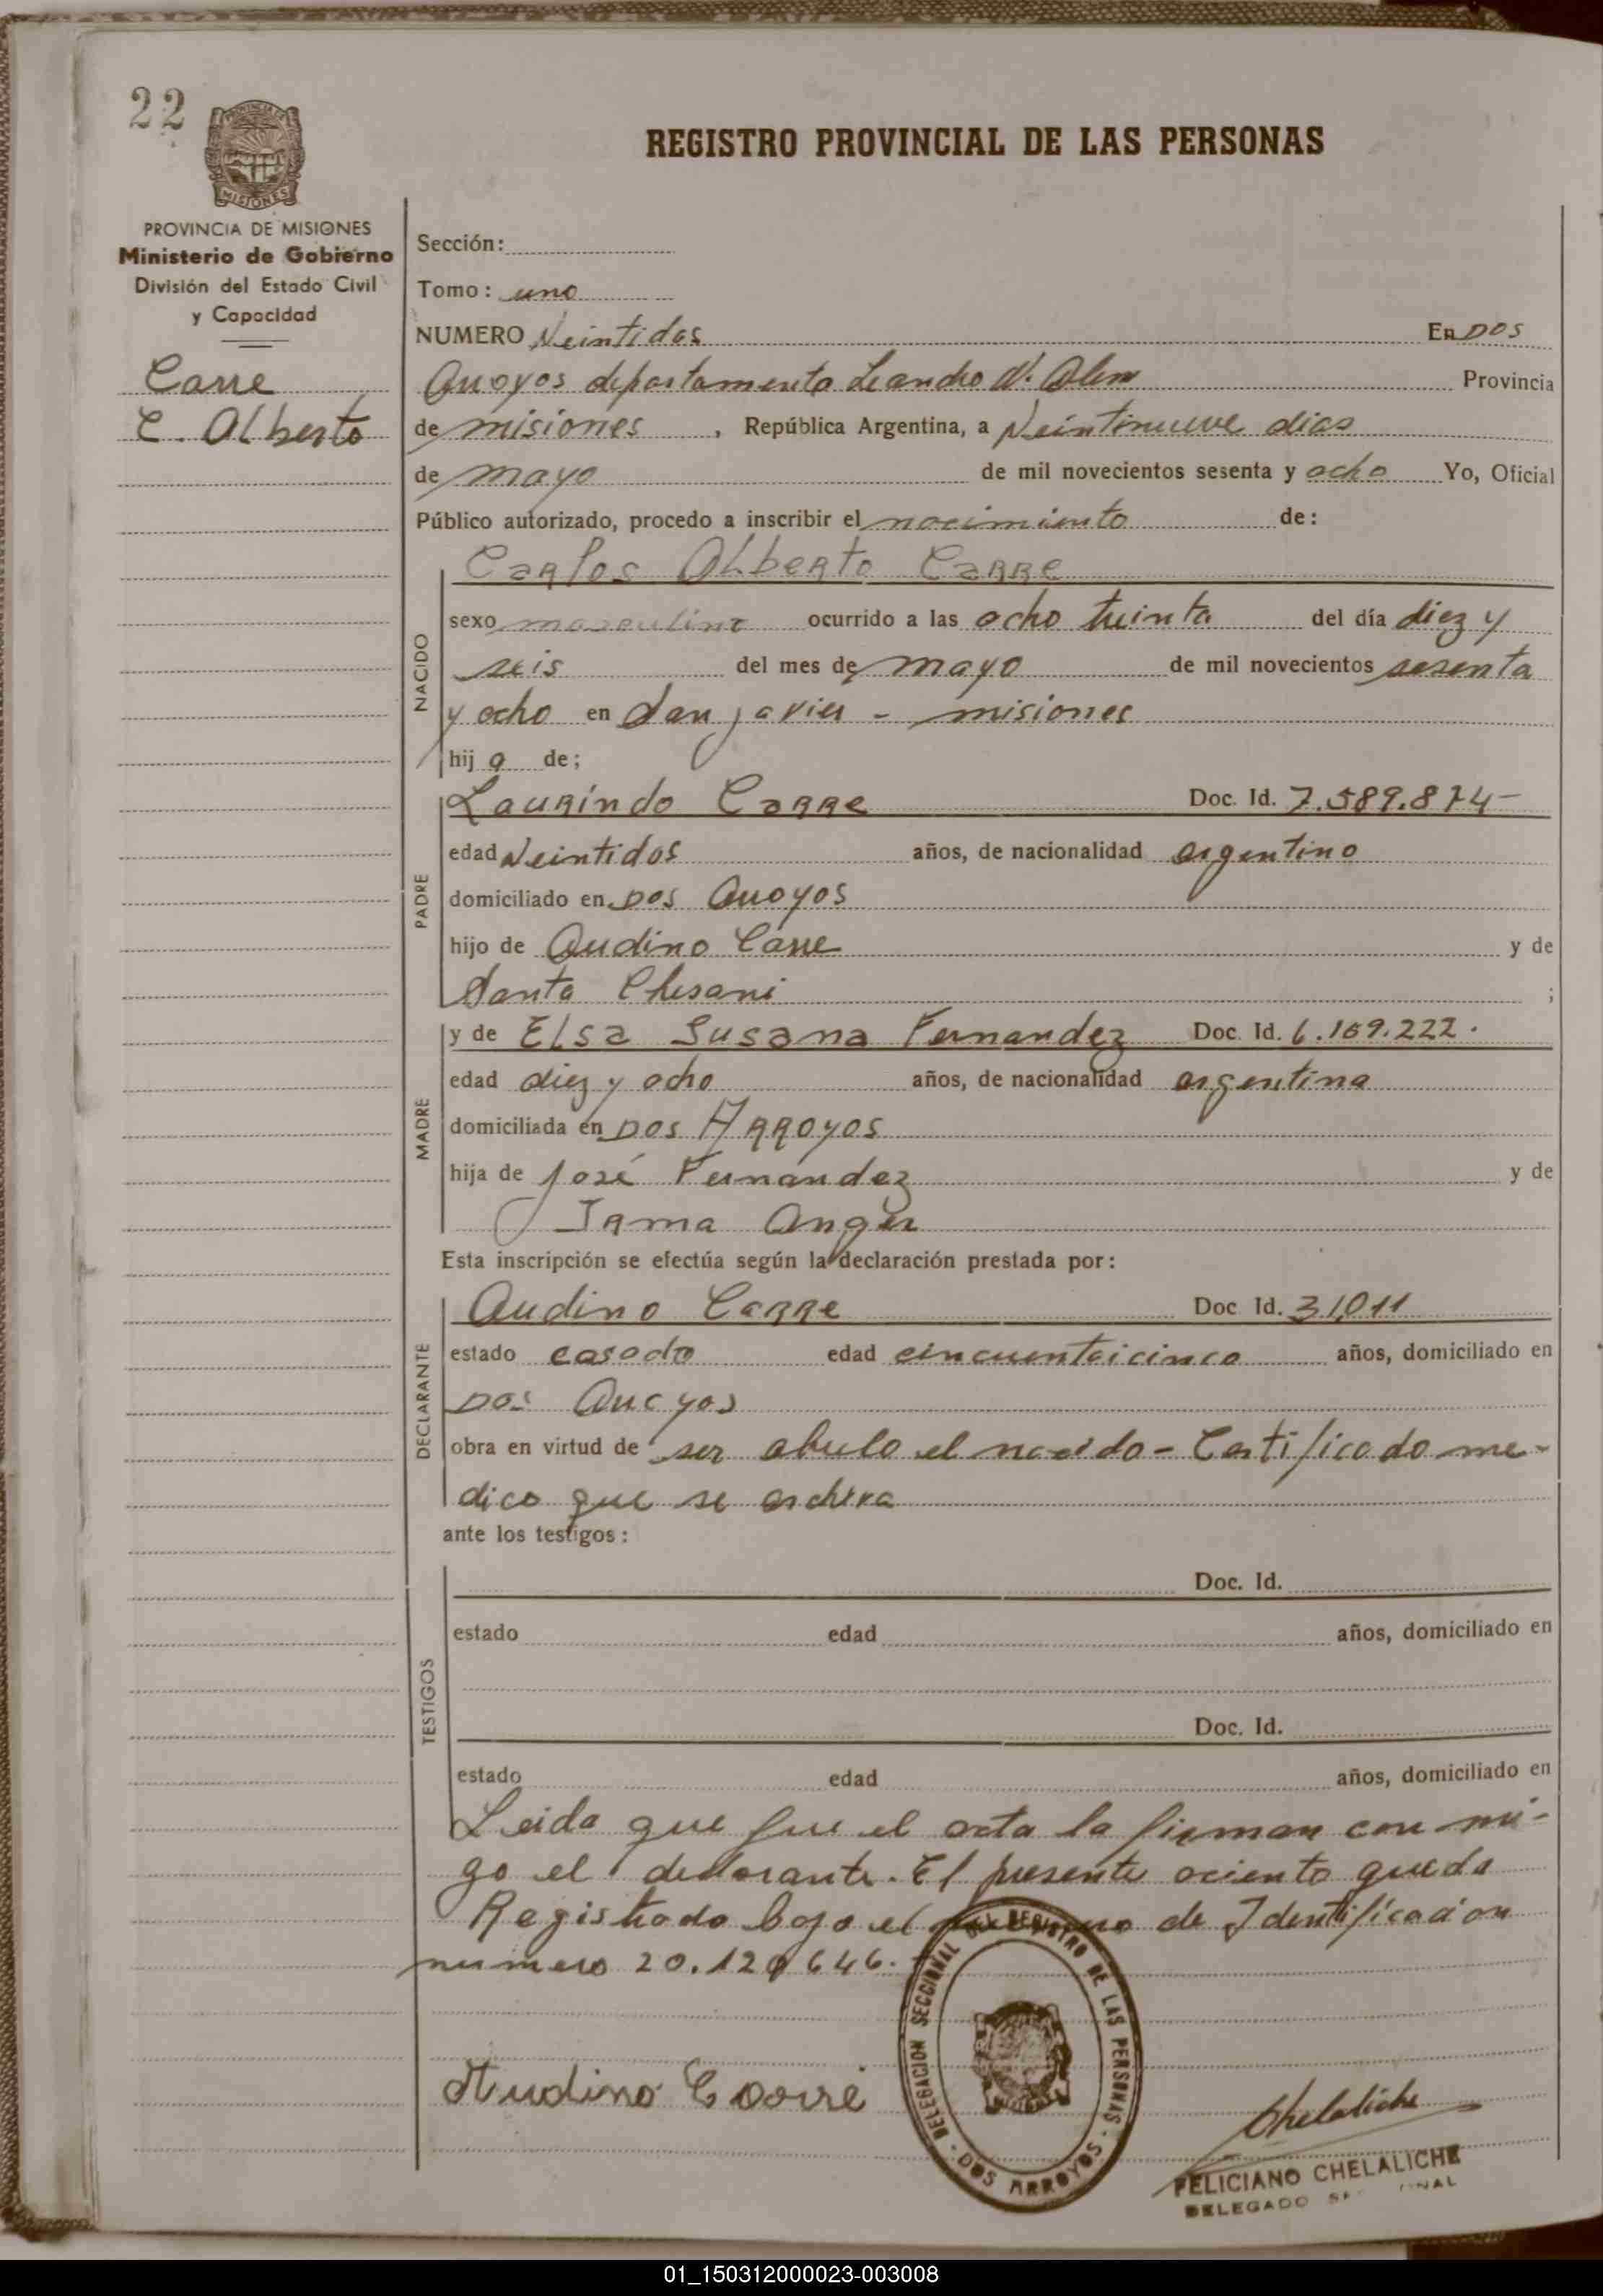 22
PROVINCIA DE
MISIONES
REGISTRO PROVINCIAL DE LAS PERSONAS
PROVINCIA DE MISIONES
Ministerio de Gobierno
División del Estado Civil
y Capacidad
Carre
C. Alberto
Sección:
Tomo: uno
NUMERO Veintidos En Dos
Arroyos departamento Leandro N. Alem Provincia
de misiones, República Argentina, a Veintinueve dias
de mayo de mil novecientos sesenta y ocho Yo, Oficial
Público autorizado, procedo a inscribir el nacimiento de:
Carlos Alberto Carre
NACIDO
sexo masculino ocurrido a las ocho treinta del día diez y
seis del mes de mayo de mil novecientos sesenta
y ocho en San javier - misiones
hij o de;
PADRE
Laurindo Carre Doc. Id. 7.589.874-
edad Veintidos años, de nacionalidad argentino
domiciliado en Dos Arroyos
hijo de Audino Carre y de
Santa Chesani ;
MADRE
y de Elsa Susana Fernandez Doc. Id. 6.169.222.
edad diez y ocho años, de nacionalidad argentina
domiciliada en Dos ARROYOS
hija de José Fernández y de
Irma Anger
Esta inscripción se efectúa según la declaración prestada por:
DECLARANTE
Audino Carre Doc. Id. 31011
estado casado edad cincuentaicinco años, domiciliado en
Dos Arroyos
obra en virtud de ser abuelo el nacido - Certificado me-
dico que se archiva
ante los testigos:
TESTIGOS
Doc. Id.
estado edad años, domiciliado en
Doc. Id.
estado edad años, domiciliado en
Leida que fue el acta la firman con mi-
go el declarante. El presente aciento queda
Registrado bajo el de Identificacion
numero 20.120646.
DELEGACION SECCIONAL DEL REGISTRO DE LAS PERSONAS - DOS ARROYOS -
Audino Carré
Chelaliche
FELICIANO CHELALICHE
DELEGADO
01_150312000023-003008